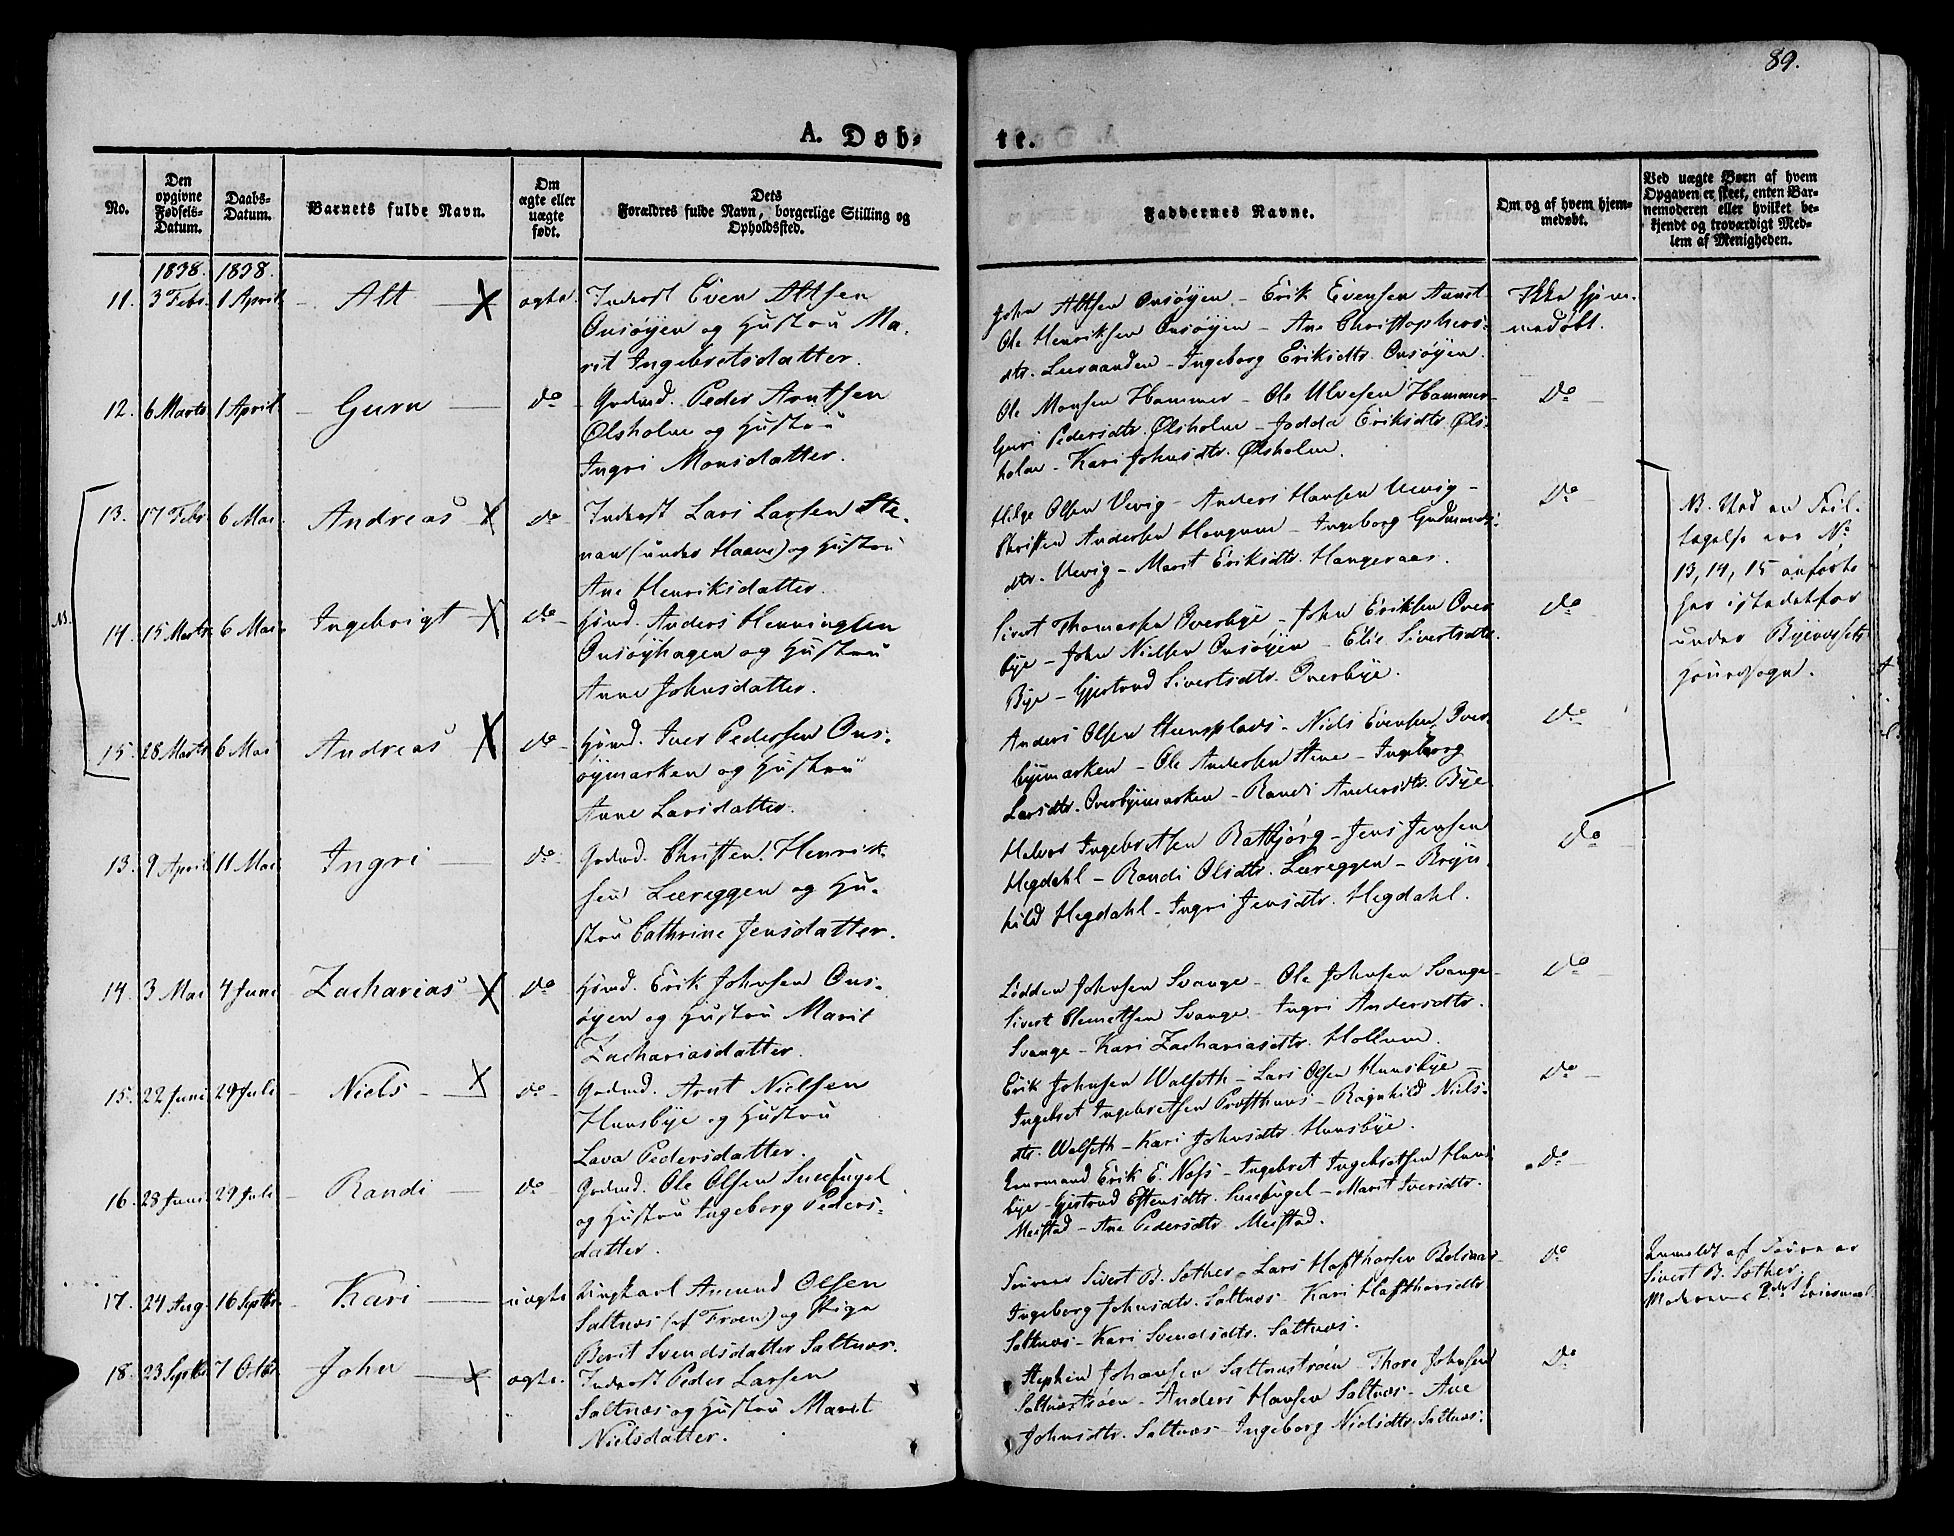 89.
A. Døb-
te.
No.
Den opgivne Fødsels-Datum.
Daabs-Datum.
Barnets fulde Navn.
Om ægte eller uægte født.
Dets Forældres fulde Navn, borgerlige Stilling og Opholdssted.
Faddernes Navne.
Om og af hvem hjemmedøbt.
Ved uægte Børn af hvem Opgaven er skeet, enten Barnemoderen eller hvilket bekjendt og troværdigt Medlem af Menigheden.
1838. 1838.
11. 3 Febr. 1 April - Alt - X ægte. Inderst Even Altsen
Onsøyen og Hustru Ma-
rit Ingebretsdatter.
John Altsen Onsøyen - Erik Evensen
Ole Henriksen Onsøyen - Ane Christophers-
dtr. Leeraanden - Ingeborg Eriksdtr. Onsøyen.
Ikke hjem-
medøbt.
12. 6 Marts 1 April - Guru - do - Grdmd. Peder Arntsen
Ølsholm og Hustru
Ingri Monsdatter.
Ole Monsen Hammer - Ole Ulvesen Hammer
Guri Pedersdtr. Ølsholm - Jødda Eriksdtr. Øls-
holm - Kari Johnsdtr. Ølsholm.
Do
13. 17 Febr. 6 Mai. Andreas - X do - Inderst Lars Larsen Ste-
nan (under Haaen) og Hustru
Ane Henriksdatter.
Helge Olsen Uevig - Anders Hansen Uevig -
Christen Andersen Hongrum - Ingeborg Gudmunds-
dtr. Uevig - Marit Eriksdtr. Hangeraas.
Do
NB. Ved en Feil-
tagelse ere No
13, 14, 15 anførte
her istedetfor
under Byenesets
Hovedsogn.
NB.
14. 15 Marts 6 Mai. Ingebrigt - X do - Hsmd. Anders Henningsen
Onsøyhagen og Hustru
Anne Johnsdatter.
Sivert Thomassen Overbye - John Eriksen Over-
bye - John Nielsen Onsøyen - Elie Sivertsdtr.
Bye - Gjertrud Sivertsdtr. Overbye.
Do
15. 28 Marts 6 Mai Andreas X do - Hsmd. Iver Pedersen Ons-
øymarken og Hustru
Anne Larsdatter.
Anders Olsen Steensplads - Niels Evensen Over-
byemarken - Ole Andersen Stene - Ingeborg
Larsdtr. Overbyemarken - Randi Andersdtr. Bye
Do
13. 9 April 11 Mai Ingri - do - Grdmd. Christen Henrik-
sen Leereggen og Hu-
stru Cathrine Jensdatter.
Halvor Ingebretsen Ratbjørg - Jens Jensen
Hegdahl - Randi Olsdtr. Leereggen - Bryn-
hild Hegdahl - Ingri Jensdtr. Hegdahl.
Do
14. 3 Mai 4 Juni Zacharias - X do Hsmd. Erik Johnsen Ons-
øyen og Hustru Marit
Zachariasdatter.
Lødden Johnsen Svange - Ole Johnsen Svange -
Sivert Clemetsen Svange - Ingri Andersdtr.
Svange - Kari Zachariasdtr. Hollum.
Do
15. 22 Juni 29 Juli - Niels - X do - Grdmd. Arnt Nielsen
Hunsbye og Hustru
Lava Pedersdatter.
Erik Johnsen Walseth - Lars Olsen Hunsbye -
Ingebret Ingebretsen Præsthuus - Ragnhild Niels-
dtr. Walseth - Kari Johnsdtr. Hunsbye.
Do
16. 28 Juni 29 Juli - Randi - do Grdmd. Ole Olsen Sneefugel
og Hustru Ingeborg Peders-
datter.
Erik E. Næss - Ingebret Ingebretsen Huns-
bye - Gjertrud Estensdtr. Sneefugel - Marit Iversdtr.
Meistad - Ane Pedersdtr. Meistad.
Do
17. 24 Aug. 16 Septbr. Kari - uægte Ungkarl Amund Olsen
Saltnes (af Froen) og Pige
Berit Svendsdatter Saltnes.
Sivert B. Sæther - Lars Hafthorsen
Ingeborg Johnsdtr. Saltnes - Kari Hafthorsdtr.
Saltnes - Kari Svendsdtr. Saltnes.
Do
Anmeldt af
Sivert B. Sæther.
Moderens 2det Leiermaal.
18. 23 Septbr 7 Octbr. John - X ægte. Inderst Peder Larsen
Saltnes og Hustru Marit
Nielsdatter.
Stephen Johansen Saltnestrøen - Thore Johnsen
Saltnestrøen - Anders Hansen Saltnes - Ane
Johnsdtr. Saltnes - Ingeborg Nielsdtr. Saltnes.
Do